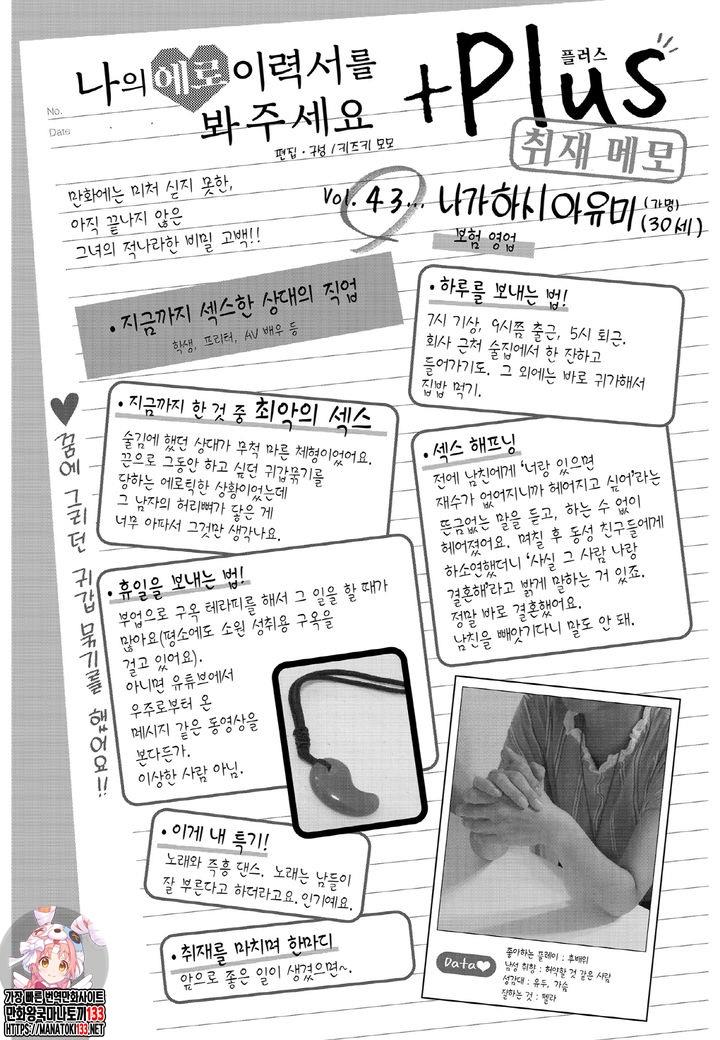 나의 에로 이력서를
봐 주세요
+Plus
플러스
편집·구성 / 키즈키 모모
취재 메모
No.
Date
만화에는 미처 싣지 못한,
아직 끝나지 않은
그녀의 적나라한 비밀 고백!!
Vol. 43... 나가하시 아유미 (가명)
(30세)
보험 영업
• 지금까지 섹스한 상대의 직업
학생, 프리터, AV 배우 등
• 하루를 보내는 법!
7시 기상, 9시쯤 출근, 5시 퇴근.
회사 근처 술집에서 한 잔하고
들어가기도. 그 외에는 바로 귀가해서
집밥 먹기.
• 지금까지 한 것 중 최악의 섹스
술김에 했던 상대가 무척 마른 체형이었어요.
끈으로 그동안 하고 싶던 귀갑묶기를
당하는 에로틱한 상황이었는데
그 남자의 허리뼈가 닿은 게
너무 아파서 그것만 생각나요.
♥ 꿈에 그리던 귀갑 묶기를 했어요!!
• 섹스 해프닝
전에 남친에게 '너랑 있으면
재수가 없어지니까 헤어지고 싶어'라는
뜬금없는 말을 듣고, 하는 수 없이
헤어졌어요. 며칠 후 동성 친구들에게
하소연했더니 '사실 그 사람 나랑
결혼해'라고 밝게 말하는 거 있죠.
정말 바로 결혼했어요.
남친을 빼앗기다니 말도 안 돼.
• 휴일을 보내는 법!
부업으로 구옥 테라피를 해서 그 일을 할 때가
많아요(평소에도 소원 성취용 구옥을
걸고 있어요).
아니면 유튜브에서
우주로부터 온
메시지 같은 동영상을
본다든가.
이상한 사람 아님.
• 이게 내 특기!
노래와 즉흥 댄스. 노래는 남들이
잘 부른다고 하더라고요. 인기예요.
• 취재를 마치며 한마디
앞으로 좋은 일이 생겼으면~.
Data♥
좋아하는 플레이 : 후배위
남성 취향 : 허약할 것 같은 사람
성감대 : 유두, 가슴
잘하는 것 : 펠라
가장 빠른 번역만화사이트
만화왕국마나토끼133
HTTPS://MANATOKI133.NET